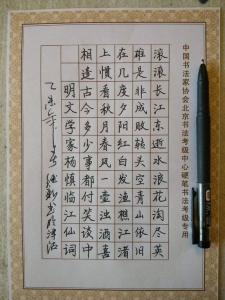 中国书法家协会北京书法考级中心硬笔书法考级专用
滚滚长江东逝水浪花淘尽英
雄是非成败转头空青山依旧
在几度夕阳红白发渔樵江渚
上惯看秋月春风一壶浊酒喜
相逢古今多少事都付笑谈中
明文学家杨慎临江仙词